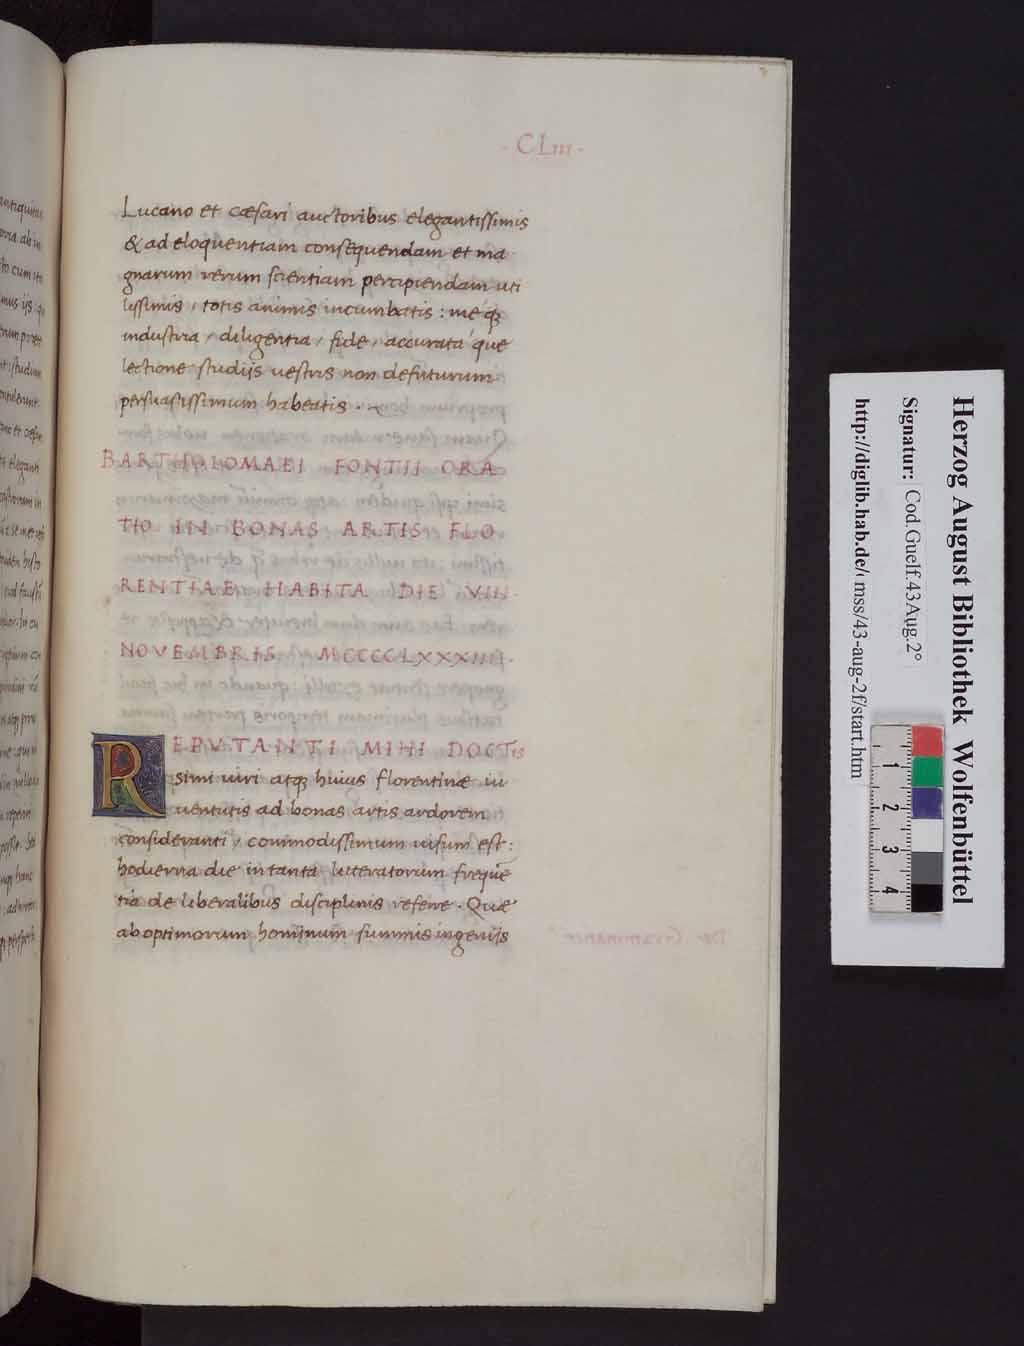 · CLiii ·
Lucano et cæsari auctoribus elegantissimis
& ad eloquentiam consequendam et ma
gnarum rerum scientiam percipiendam uti
lissimis / totis animis incumbatis : meq;
industria / diligentia / fide / accurata que
lectione studijs uestris non defuturum
persuasissimum habeatis .
BARTHOLOMAEI FONTII ORA
TIO IN BONAS ARTIS FLO
RENTIAE HABITA DIE VIII ·
NOVEMBRIS MCCCCLXXXIIII ·
REPVTANTI MIHI DOCTis
simi uiri atq; huius florentinæ iu
uentutis ad bonas artis ardorem
consideranti / commodissimum uisum est :
hodierna die in tanta litteratorum frequē
tia de liberalibus disciplinis referre . Quæ
ab optimorum hominum summis ingenijs
Herzog August Bibliothek Wolfenbüttel
Signatur: Cod. Guelf. 43 Aug. 2°
http://diglib.hab.de/mss/43-aug-2f/start.htm
1 2 3 4